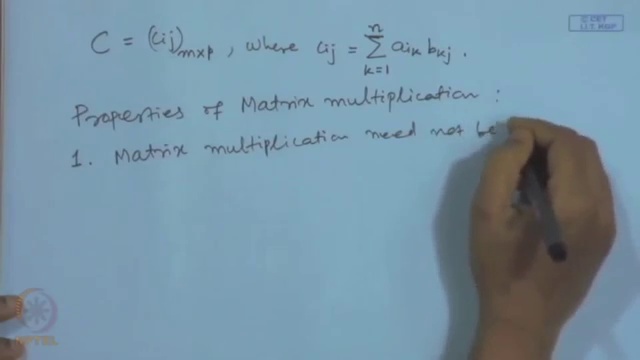 © CET
I.I.T. KGP
C = (cij)m×p, where cij = n∑k=1 aik bkj.
Properties of Matrix multiplication :
1. Matrix multiplication need not be
NPTEL